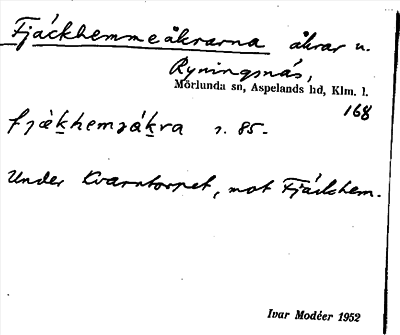 Fjäckhemmeåkrarna åkrar u.
Ryningsnäs,
Mörlunda sn, Aspelands hd, Klm. l.
168
fjækhemɜåkra r. 85.
Under Kvarntorpet, mot Fjäckhem.
Ivar Modéer 1952